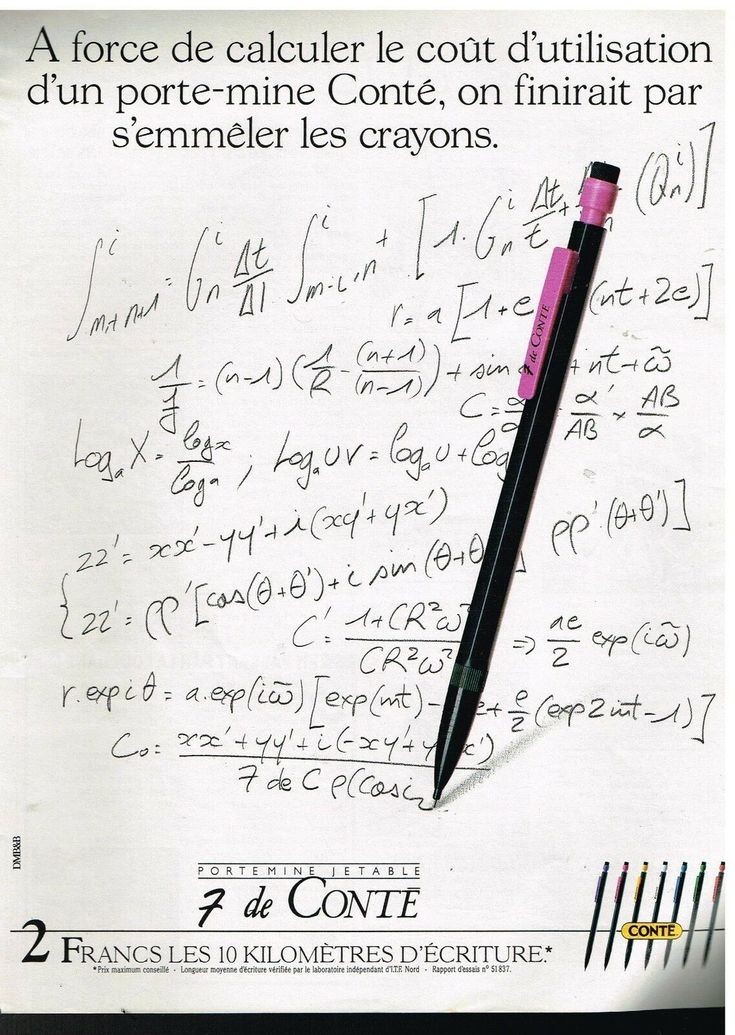 A force de calculer le coût d'utilisation
d'un porte-mine Conté, on finirait par
s'emmêler les crayons.
∫ᵢ m+n+1 = Gₙⁱ Δt/Δl ∫ⁱ m-i,n + [1·Gₙⁱ Δt/t + (Qₙⁱ)]
r = a [1+e (nt+2e)]
1/f = (n-1) (1/R - (n+1)/(n-1)) + sin + nt + ω̃
C = α α'/AB × AB/α
Logₐ X = log x/log a ; Logₐ UV = logₐ U + log
zz' = xx' - yy' + i (xy' + yx')
zz' = ρρ' [cos(θ+θ') + i sin (θ+θ ρρ' (θ+θ')]
C' = 1+CR²ω²/CR²ω² ⇒ 1e/2 exp(iω̃)
r.exp iθ = a.exp(iω̃) [exp(int) - e + e/2 (exp2int-1)]
C₀ = xx' + yy' + i (-xy' + y x')/7 de C ρ(cos i
7 de CONTÉ
DMB&B
PORTEMINE JETABLE
7 de CONTÉ
CONTÉ
2 FRANCS LES 10 KILOMÈTRES D'ÉCRITURE.*
*Prix maximum conseillé - Longueur moyenne d'écriture vérifiée par le laboratoire indépendant d'I.T.F. Nord - Rapport d'essais n° 51837.